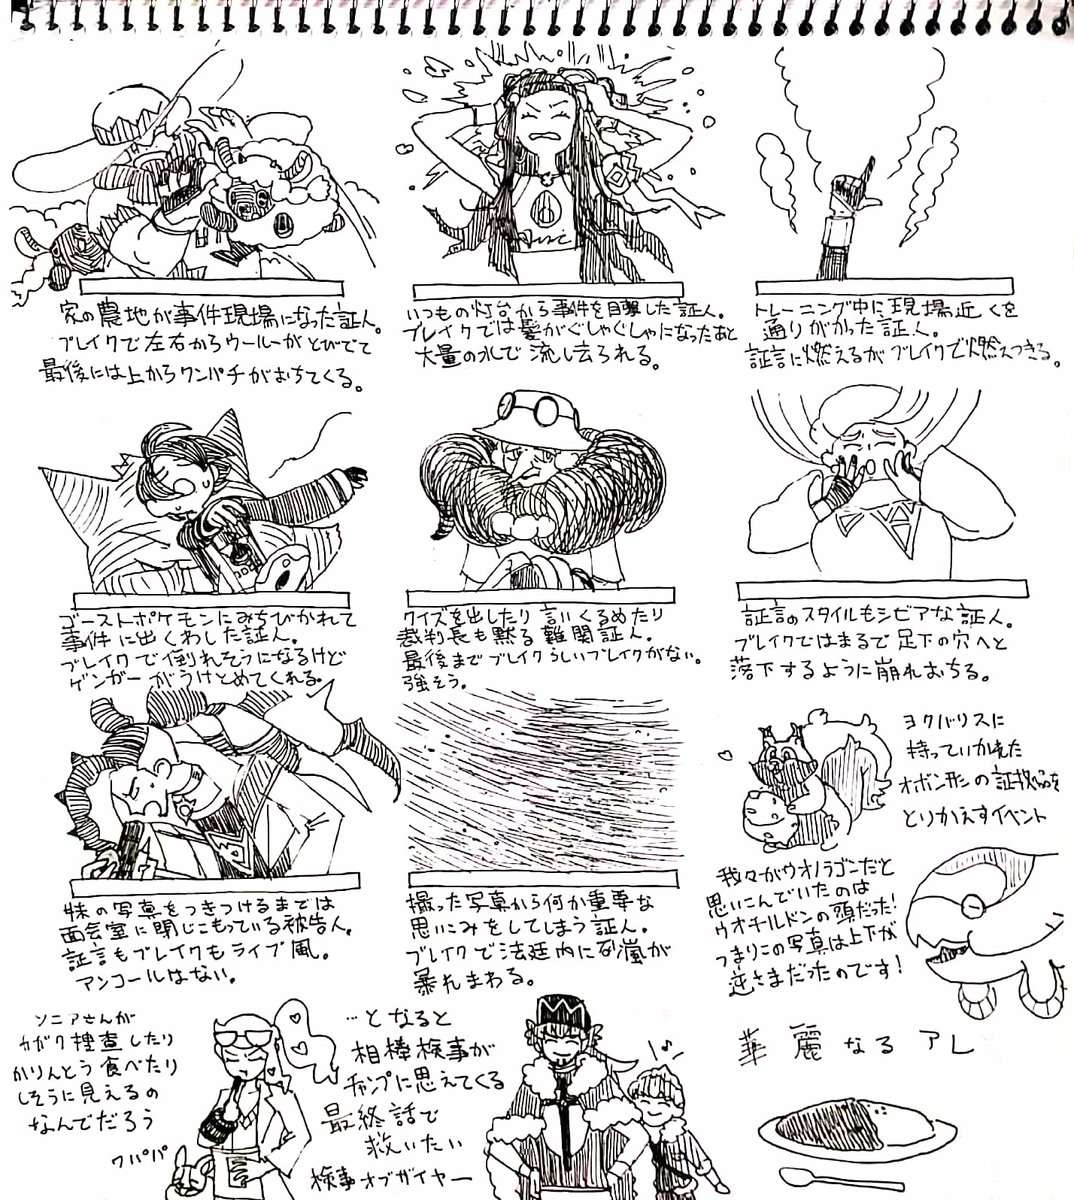 家の農地が事件現場になった証人。
ブレイクで左右からウールーがとびでて
最後には上からワンパチがおちてくる。
いつもの灯台から事件を目撃した証人。
ブレイクでは髪がぐしゃぐしゃになったあと
大量の水で流し去られる。
トレーニング中に現場近くを
通りがかった証人。
証言に燃えるがブレイクで燃えつきる。
ゴーストポケモンにみちびかれて
事件に出くわした証人。
ブレイクで倒れそうになるけど
ゲンガーがうけとめてくれる。
クイズを出したり言いくるめたり
裁判長も黙る難関証人。
最後までブレイクらしいブレイクがない。
強そう。
証言のスタイルもシビアな証人。
ブレイクではまるで足下の穴へと
落下するように崩れおちる。
妹の写真をつきつけるまでは
面会室に閉じこもっている被告人。
証言もブレイクもライブ風。
アンコールはない。
撮った写真から何か重要な
思いこみをしてしまう証人。
ブレイクで法廷内に砂嵐が
暴れまわる。
ヨクバリスに
持っていかれた
オボン形の証拠品を
とりかえすイベント
我々がウオノラゴンだと
思いこんでいたのは
ウオチルドンの頭だった!
つまりこの写真は上下が
逆さまだったのです!
ソニアさんが
カガク捜査したり
かりんとう食べたり
しそうに見えるの
なんでだろう
ワパパ
…となると
相棒検事が
チャンプに思えてくる
最終話で
救いたい
検事オブガイヤー
華麗なるアレ